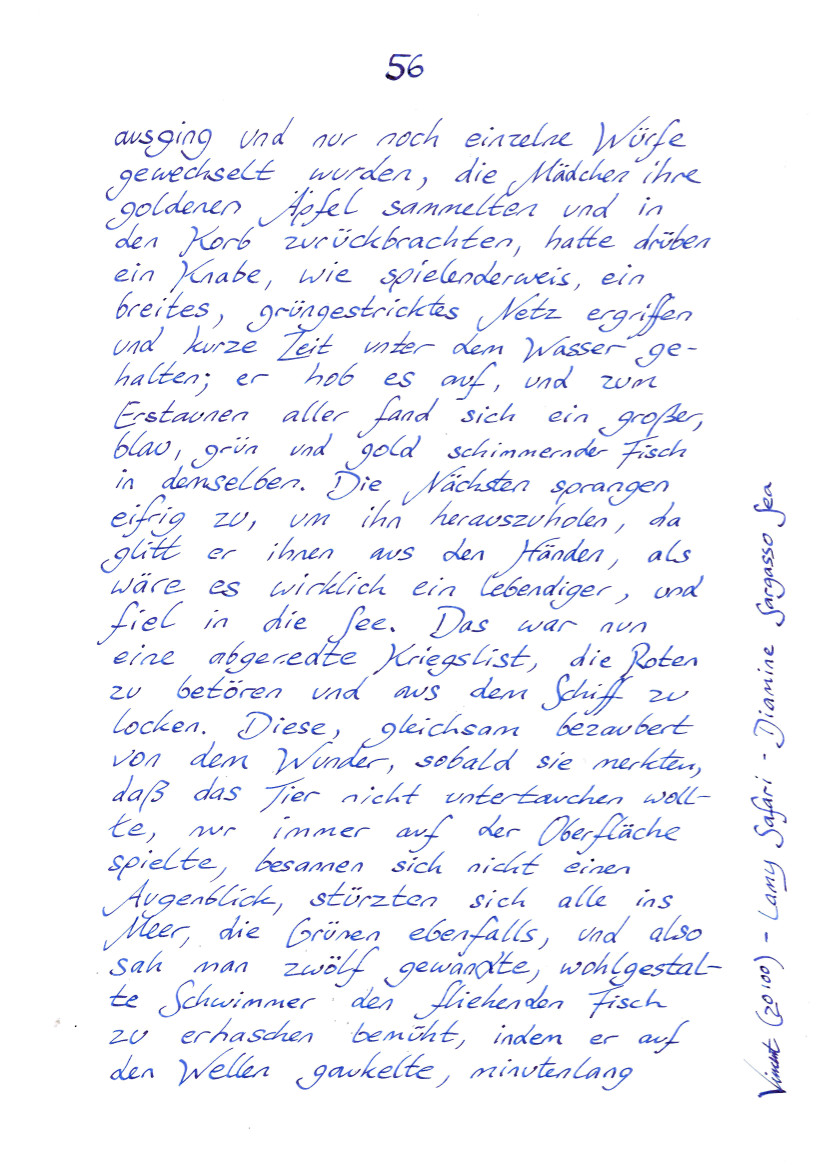 56
ausging und nur noch einzelne Würfe
gewechselt wurden, die Mädchen ihre
goldenen Äpfel sammelten und in
den Korb zurückbrachten, hatte drüben
ein Knabe, wie spielenderweis, ein
breites, grüngestricktes Netz ergriffen
und kurze Zeit unter dem Wasser ge-
halten; er hob es auf, und zum
Erstaunen aller fand sich ein großer,
blau, grün und gold schimmernder Fisch
in demselben. Die Nächsten sprangen
eifrig zu, um ihn herauszuholen, da
glitt er ihnen aus den Händen, als
wäre es wirklich ein lebendiger, und
fiel in die See. Das war nun
eine abgeredte Kriegslist, die Roten
zu betören und aus dem Schiff zu
locken. Diese, gleichsam bezaubert
von dem Wunder, sobald sie merkten,
daß das Tier nicht untertauchen woll-
te, nur immer auf der Oberfläche
spielte, besannen sich nicht einen
Augenblick, stürzten sich alle ins
Meer, die Grünen ebenfalls, und also
sah man zwölf gewandte, wohlgestal-
te Schwimmer den fliehenden Fisch
zu erhaschen bemüht, indem er auf
den Wellen gaukelte, minutenlang
Vincent (20100) - Lamy Safari - Diamine Sargasso Sea